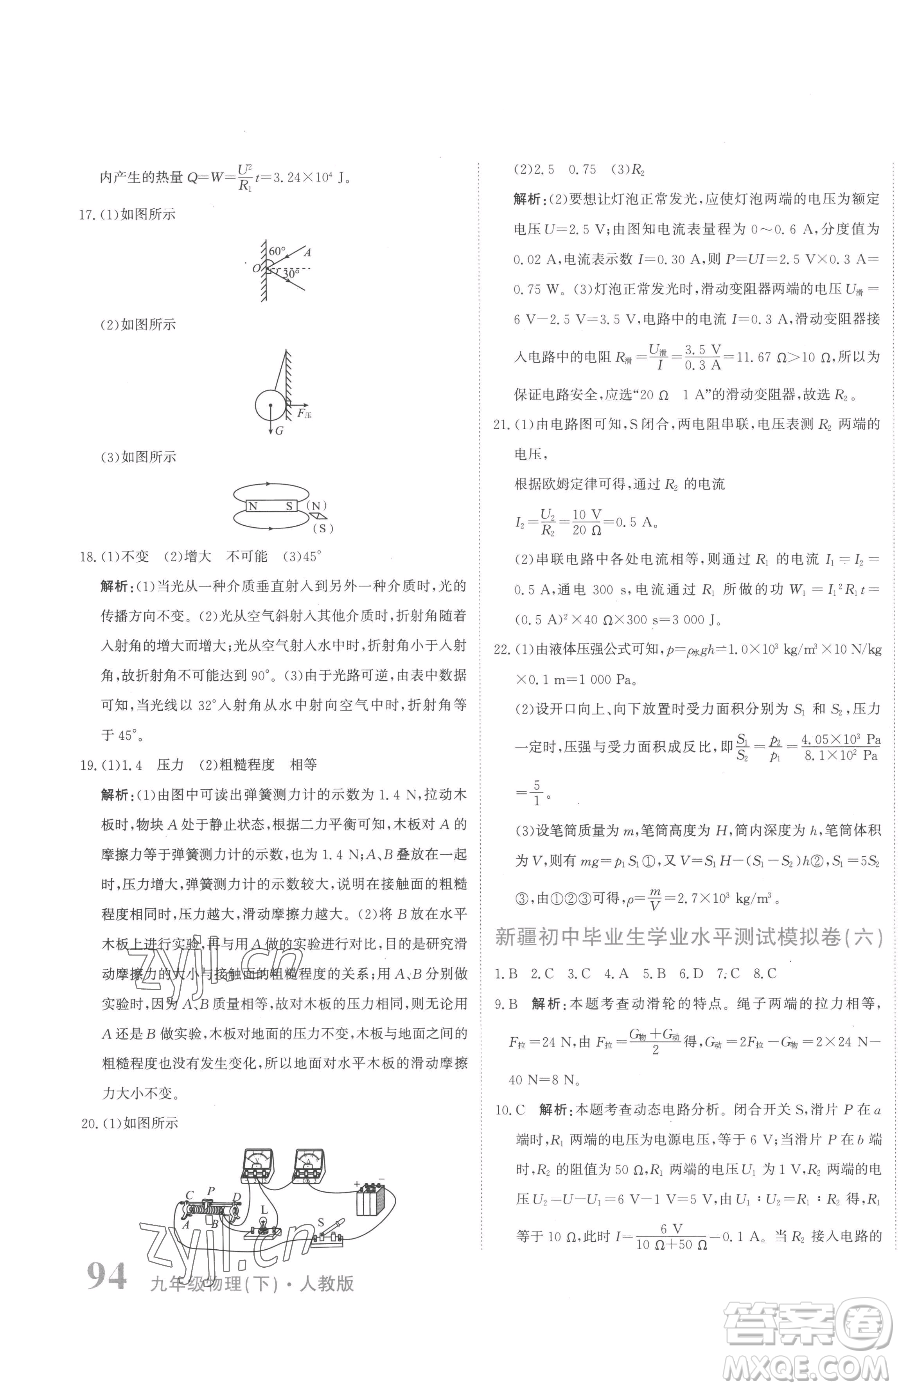 内产生的热量 Q=W=U²/R₁ t=3.24×10⁴ J。
17.(1)如图所示
60° A
O 30°
(2)如图所示
F压
G
(3)如图所示
N S (N)
(S)
18.(1)不变 (2)增大 不可能 (3)45°
解析:(1)当光从一种介质垂直射入到另外一种介质时,光的
传播方向不变。(2)光从空气斜射入其他介质时,折射角随着
入射角的增大而增大;光从空气斜射入水中时,折射角小于入射
角,故折射角不可能达到 90°。(3)由于光路可逆,在光从水中射
到空气时,光线以 32°入射角从水中射向空气中时,折射角等
于 45°。
19.(1)1.4 压力 (2)粗糙程度 相等
解析:(1)由图中可读出弹簧测力计的示数为 1.4 N,拉动木
板时,物块 A 处于静止状态,根据二力平衡可知,木板对 A 的
摩擦力等于弹簧测力计的示数,为 1.4 N;A、B 叠放在一起
时,压力增大,弹簧测力计的示数较大,说明在接触面的粗糙
程度相同时,压力越大,滑动摩擦力越大。(2)将 B 放在水平
木板上再次实验,与丙图实验进行对比,压力相同,可探究滑
动摩擦力的大小与接触面的粗糙程度的关系;用木板继续做
实验时,A、B 对木板的压力不变,木板对地面的压力不变;由
A 还是 B 在做实验,木板对地面的压力不变,木板和地面的
粗糙程度也没有发生变化,所以地面对水平木板的滑动摩擦
力大小不变。
20.(1)如图所示
V A
C P D
A B L S
+ −
94 九年级物理(下)·人教版
(2)2.5 0.75 (3)R₂
解析:(2)要想让灯泡正常发光,应使灯泡两端的电压为额定
电压 U=2.5 V;由图知电流表量程为 0～0.6 A,分度值为
0.02 A,电流表示数 I=0.30 A,则 P=UI=2.5 V×0.3 A=
0.75 W。(3)灯泡正常发光时,滑动变阻器两端的电压 U滑=
6 V-2.5 V=3.5 V,电路中的电流 I=0.3 A,滑动变阻器接
入电路中的电阻 R滑=U滑/I=3.5 V/0.3 A=11.67 Ω>10 Ω,所以为
保证电路安全,应选“20 Ω 1 A”的滑动变阻器,故选 R₂。
21.(1)由电路图可知,S 闭合,两电阻串联,电压表测 R₂ 两端的
电压,
根据欧姆定律可得,通过 R₂ 的电流
I₂=U₂/R₂=10 V/20 Ω=0.5 A。
(2)串联电路中各处电流相等,则通过 R₁ 的电流 I₁=I₂=
0.5 A,通电 300 s,电流通过 R₁ 所做的功 W₁=I₁²R₁t=
(0.5 A)²×40 Ω×300 s=3 000 J。
22.(1)由液体压强公式可知,p=ρ水gh=1.0×10³ kg/m³×10 N/kg
×0.1 m=1 000 Pa。
(2)设开口向上、向下放置时受力面积分别为 S₁ 和 S₂,压力
一定时,压强与受力面积成反比,即S₁/S₂=p₂/p₁=4.05×10³ Pa/8.1×10² Pa
=5/1。
(3)设笔筒质量为 m,笔筒高度为 H,筒内深度为 h,笔筒体积
为 V,则有 mg=p₁S₁①,又 V=S₁H-(S₁-S₂)h②,5S₂=S₁
③,由①②③可得,ρ=m/V=2.7×10³ kg/m³。
新疆初中毕业生学业水平测试模拟卷(六)
1.B 2.C 3.C 4.A 5.B 6.D 7.C 8.C
9.B 解析:本题考查动滑轮的特点。绳子两端的拉力相等,
F拉=24 N,由F拉=(G物+G动)/2得,G动=2F拉-G物=2×24 N-
40 N=8 N。
10.C 解析:本题考查动态电路分析。闭合开关 S,滑片 P 在 a
端时,R₁ 两端的电压为电源电压,等于 6 V;当滑片 P 在 b 端
时,R₂ 的阻值为 50 Ω,R₁ 两端的电压 U₁=1 V,R₂ 两端的电
压 U₂=U-U₁=6 V-1 V=5 V,由 U₁∶U₂=R₁∶R₂ 得,R₁
等于 10 Ω,此时电流 I=6 V/(10 Ω+50 Ω)=0.1 A。当 R₂ 接入电路的
zyjl.cn
zyjl.cn
答案圈
MXQE.COM